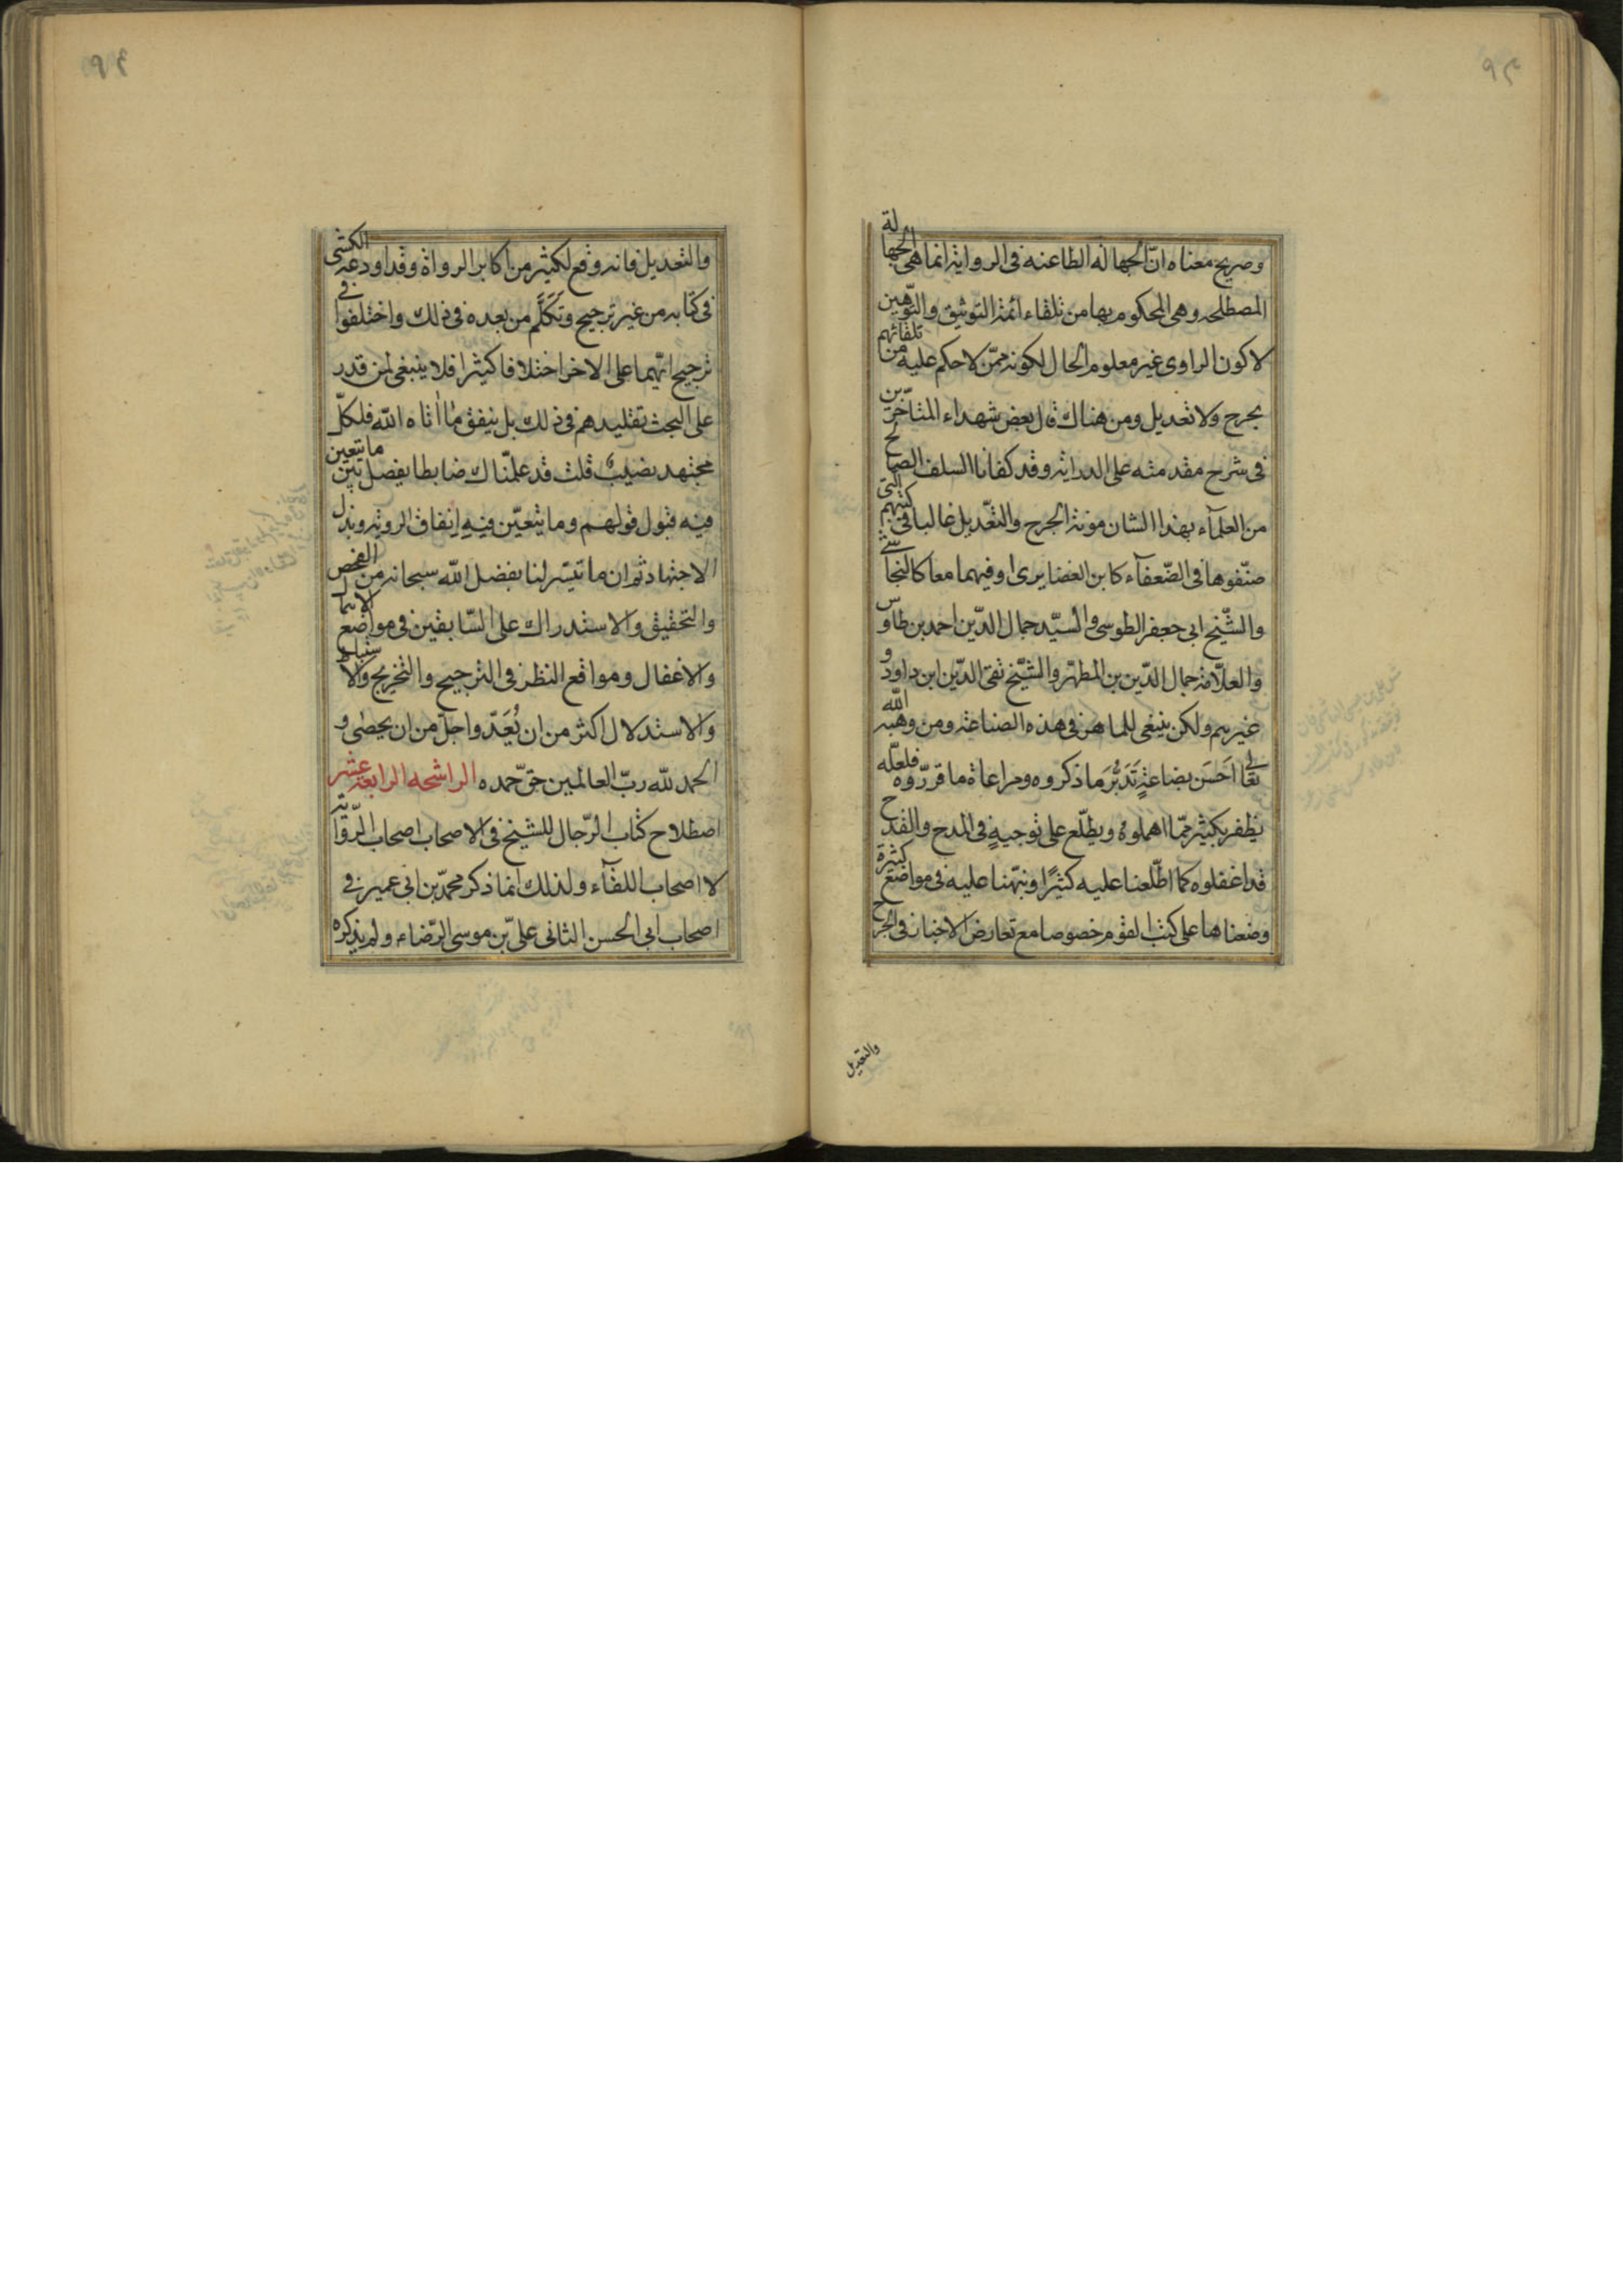 وصريح معناه ان الجهالة الطاعنه فى الرواية انما هى الجهالة
المصطلحه وهى المحكوم بها من تلقاء ائمة التوثيق والتوهين
لا كون الراوى غير معلوم الحال لكونه ممّن لا حكم عليه من تلقائهم
بجرح ولا تعديل ومن هناك قال بعض شهداء المتاخّرين
فى شرح مقدمته على الدراية وقد كفانا السلف الصالح
من العلمآء بهذا الشان مونة الجرح والتعّديل غالبا فى كتبهم التى
صنّفوها فى الضّعفآء كابن الغضايرى او فيهما معا كالنجاشے
والشّيخ ابى جعفر الطوسى والسيّد جمال الدّين احمد بن طاوس
والعلاّمة جمال الدّين بن المطهّر والشيّخ تقى الدّين ابن داود و
غيرهم ولكن ينبغى للماهر فى هذه الصناعة ومن وهبه اللّه
تعالى احَسَن بضاعةٍ تَدَبُّرَ ما ذكروه ومراعاة ما قررّوه فلعلّه
يظفر بكثير ممّا اهملوه ويطلّع على توجيهٍ فى المدح والقدح
قد اغفلوه كما اطّلعنا عليه كثيرًا ونبّهنا عليه فى مواضع كثيرة
وضعناها على كتب القوم خصوصا مع تعارض الاخبار فى الجرح
والتعديل
والتعديل فانه وقع لكثير من اكابر الرواة وقد اودعه الكشى
فى كتابه من غير ترجيح وتَكَلَّم من بعده فى ذلك واختلفوا فى
ترجيح ايّهما على الاخر اختلافا كثيرا فلا ينبغى لمن قدر
على البحث تقليدهم فى ذلك بل ينفق ممّا اٰتاه اللّه فلكلّ
مجتهد نصيبٌ قلت قد علمنّاك ضابطا يفصل بين ما تتعين
فيه قبول قولهم وما يتعيّن فيهِ اِنفاق الروية وبذل
الاجتهاد ثم ان ما تيسّر لنا بفضل اللّه سبحانه من الفحص
والتحقيق والاستدراك على السّابقين فى مواضع الاهمال
والاغفال ومواقع النظر فى الترجيح والتخريج والاستنباط
والاستدلال اكثر من ان يُعَدّ واجلّ من ان يحصٰى و
الحمد للّه ربّ العالمين حقّ حمده الراشحه الرابعة عشر
اصطلاح كتاب الرّجال للشيخ فى الاصحاب اصحاب الرّواية
لا اصحاب اللقآء ولذلك انما ذكر محمّد بن ابى عمير فى
اصحاب ابى الحسن الثانى علىّ بن موسى الرّضاء ولم يذكره